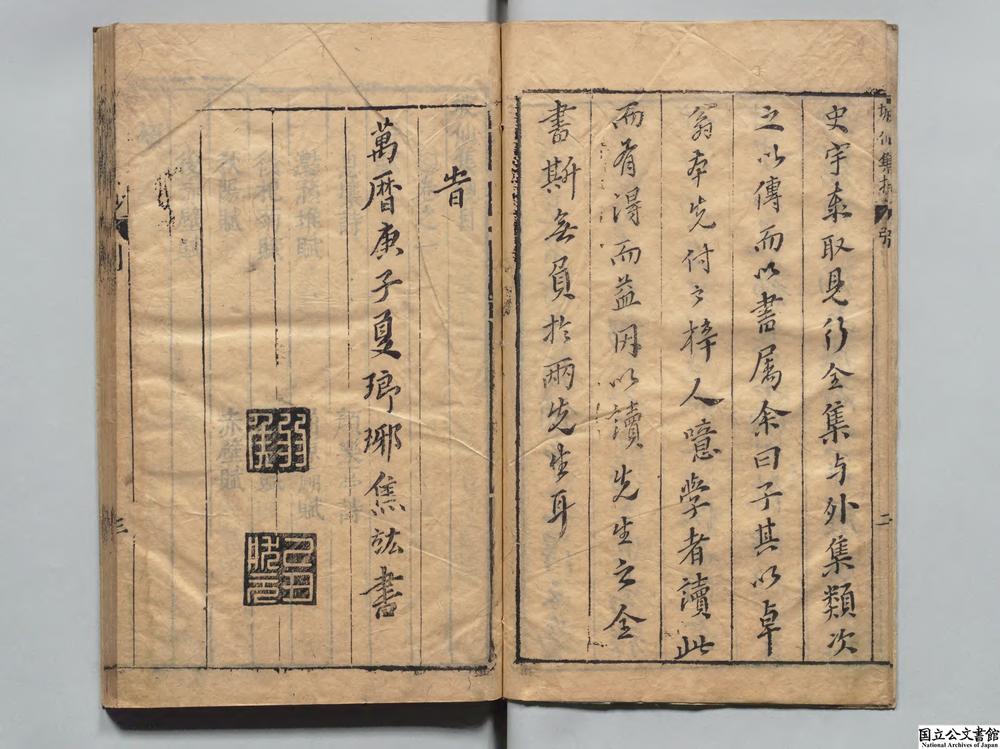 坡仙集抄
史宇泰取見行全集与外集類次
之以傳而以書属余曰子其以卓
翁本先付之梓人噫学者讀此
而有得而益因以讀先生之全
書斯無負於兩先生耳
二
旹
萬曆庚子夏瑯琊焦竑書
三
国立公文書館
National Archives of Japan